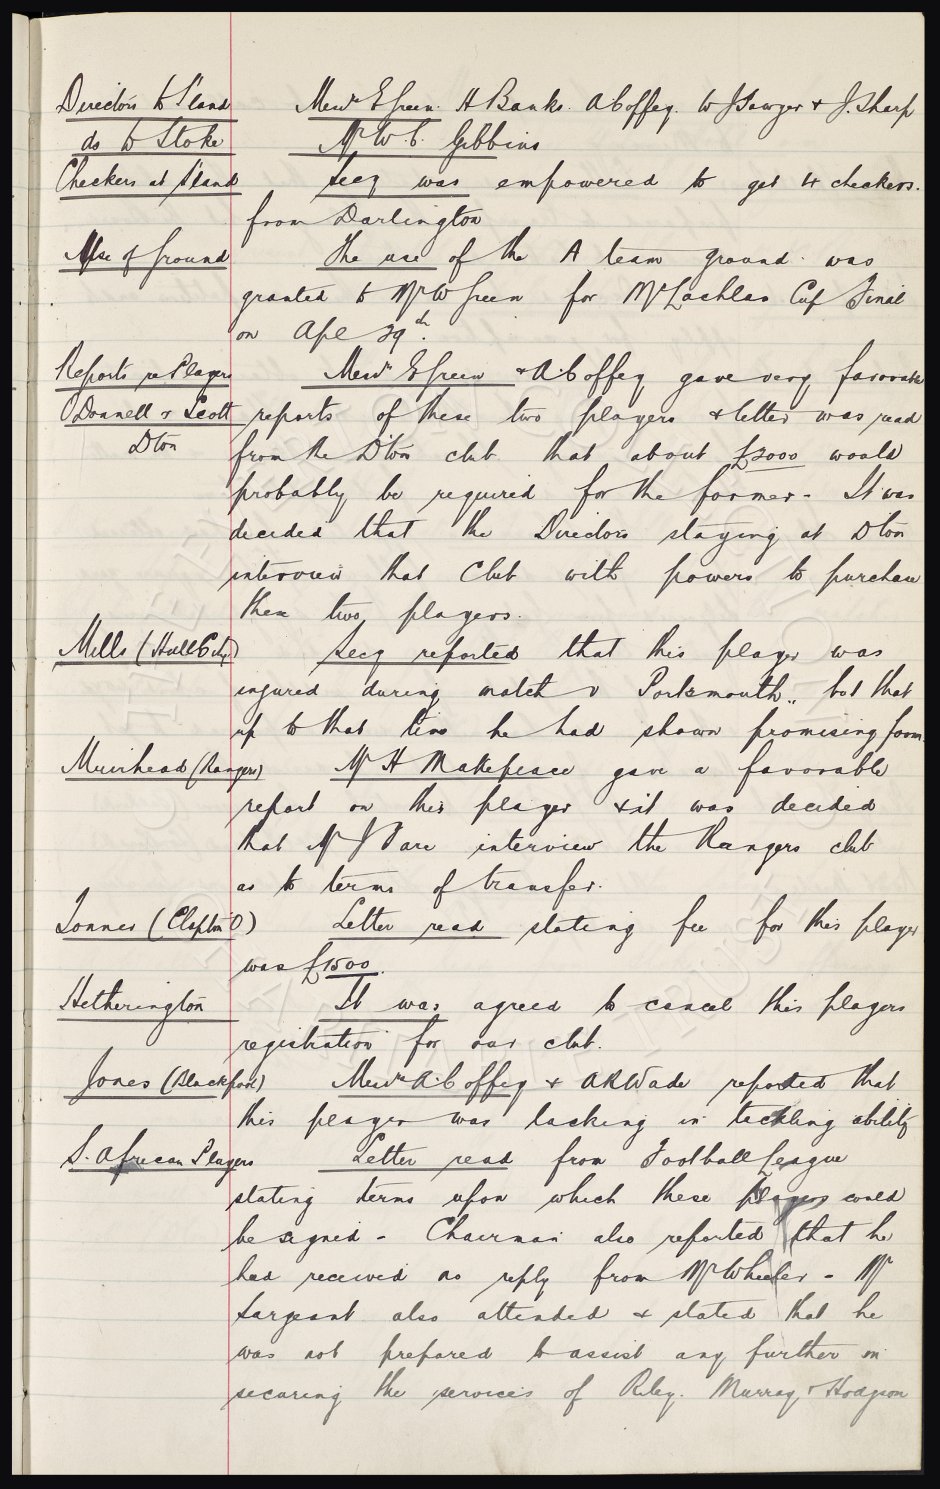 Directors to S'land Messrs E Green. H Banks. A Coffey. W J Sawyer & J. Sharp
do to Stoke Mr W. C. Gibbins
Checkers at S'land Secy was empowered to get 4 checkers.
from Darlington
Use of Ground The use of the A team ground was
granted to Mr W Green for McLachlan Cup Final
on Apl 29th.
Reports re Players Messrs E Green & A. Coffey gave very favorable
O'Donnell & Scott reports of these two players & letter was read
Dton from the D'ton club that about £3000 would
probably be required for the former - It was
decided that the Directors staying at Dton
interview that Club with powers to purchase
these two players.
Mills (Hull City) Secy reported that this player was
injured during match v Portsmouth, but that
up to that time he had shown promising form.
Muirhead (Rangers) Mr H Makepeace gave a favorable
report on this player & it was decided
that Mr J Dare interview the Rangers club
as to terms of transfer.
Tonner (Clapton O) Letter read stating fee for this player
was £1500.
Hetherington It was agreed to cancel this players
registration for our club.
Jones (Blackpool) Messrs A. Coffey & A R Wade reported that
this player was lacking in tackling ability
S. African Players Letter read from Football League
stating terms upon which these players could
be signed - Chairman also reported that he
had received no reply from Mr Wheeler - Mr
Sargeant also attended & stated that he
was not prepared to assist any further in
securing the services of Riley. Murray & Hodgson